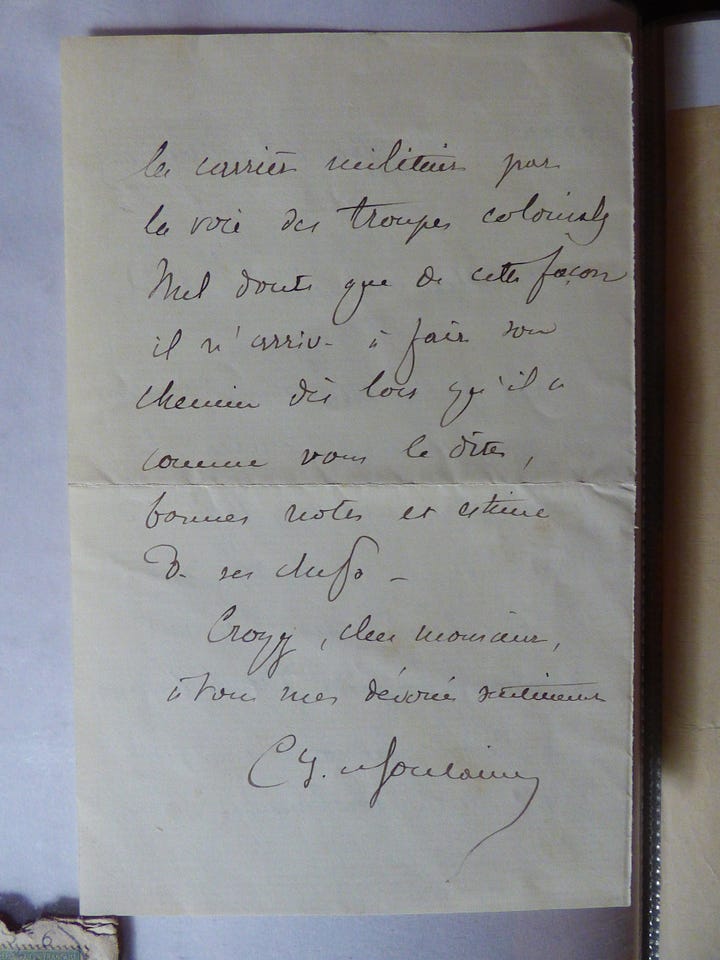 la carrière militaire par
la voie des troupes coloniales
Nul doute que de cette façon
il n'arrive à faire son
chemin dès lors qu'il a
comme vous le dites,
bonnes notes et estime
de ses chefs -
Croyez, cher monsieur,
à tous mes dévoués sentiments
Ch. de